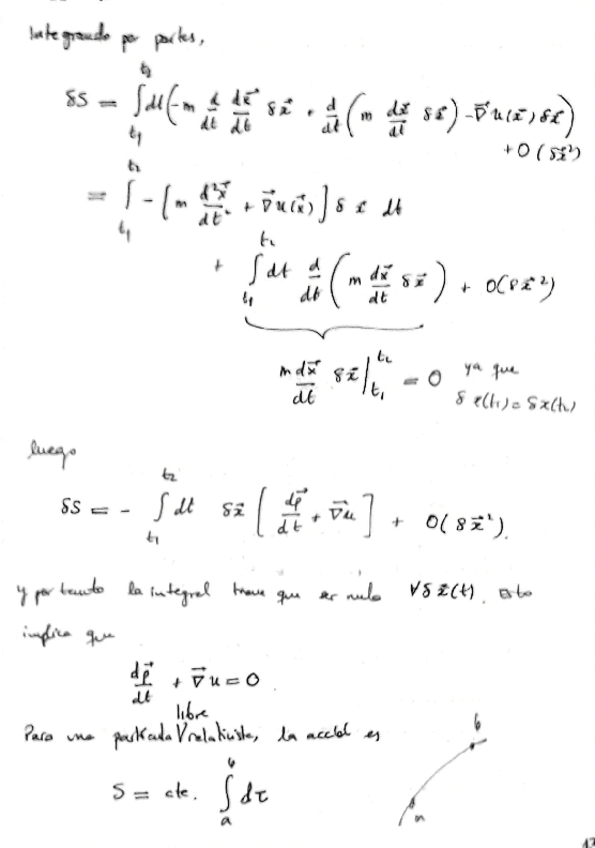 Integrando por partes,
δS = ∫_{t₁}^{t₂} dt ( -m d/dt dx⃗/dt δx⃗ + d/dt ( m dx⃗/dt δx⃗ ) - ∇⃗u(x⃗) δx⃗ )
+ O(δx⃗²)
= ∫_{t₁}^{t₂} - [ m d²x⃗/dt² + ∇⃗u(x⃗) ] δx dt
+ ∫_{t₁}^{t₂} dt d/dt ( m dx⃗/dt δx⃗ ) + O(δx⃗²)
m dx⃗/dt δx⃗ |_{t₁}^{t₂} = 0 ya que
δx(t₁) = δx(t₂)
luego
δS = - ∫_{t₁}^{t₂} dt δx⃗ [ dp⃗/dt + ∇⃗u ] + O(δx⃗²).
y por tanto la integral tiene que ser nula ∀δx⃗(t). Esto
implica que
dp⃗/dt + ∇⃗u = 0.
libre
Para una partícula V relativista, la acción es
S = cte. ∫_a^b dτ
b
a